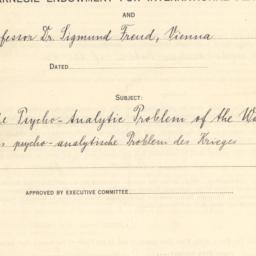 ARNEGIE ENDOWMENT FOR INTERNATIONAL
AND
ofessor Dr. Sigmund Freud, Vienna
DATED
SUBJECT:
e Psycho-Analytic Problem of the Wa
s psycho-analytische Problem des Krieges
APPROVED BY EXECUTIVE COMMITTEE